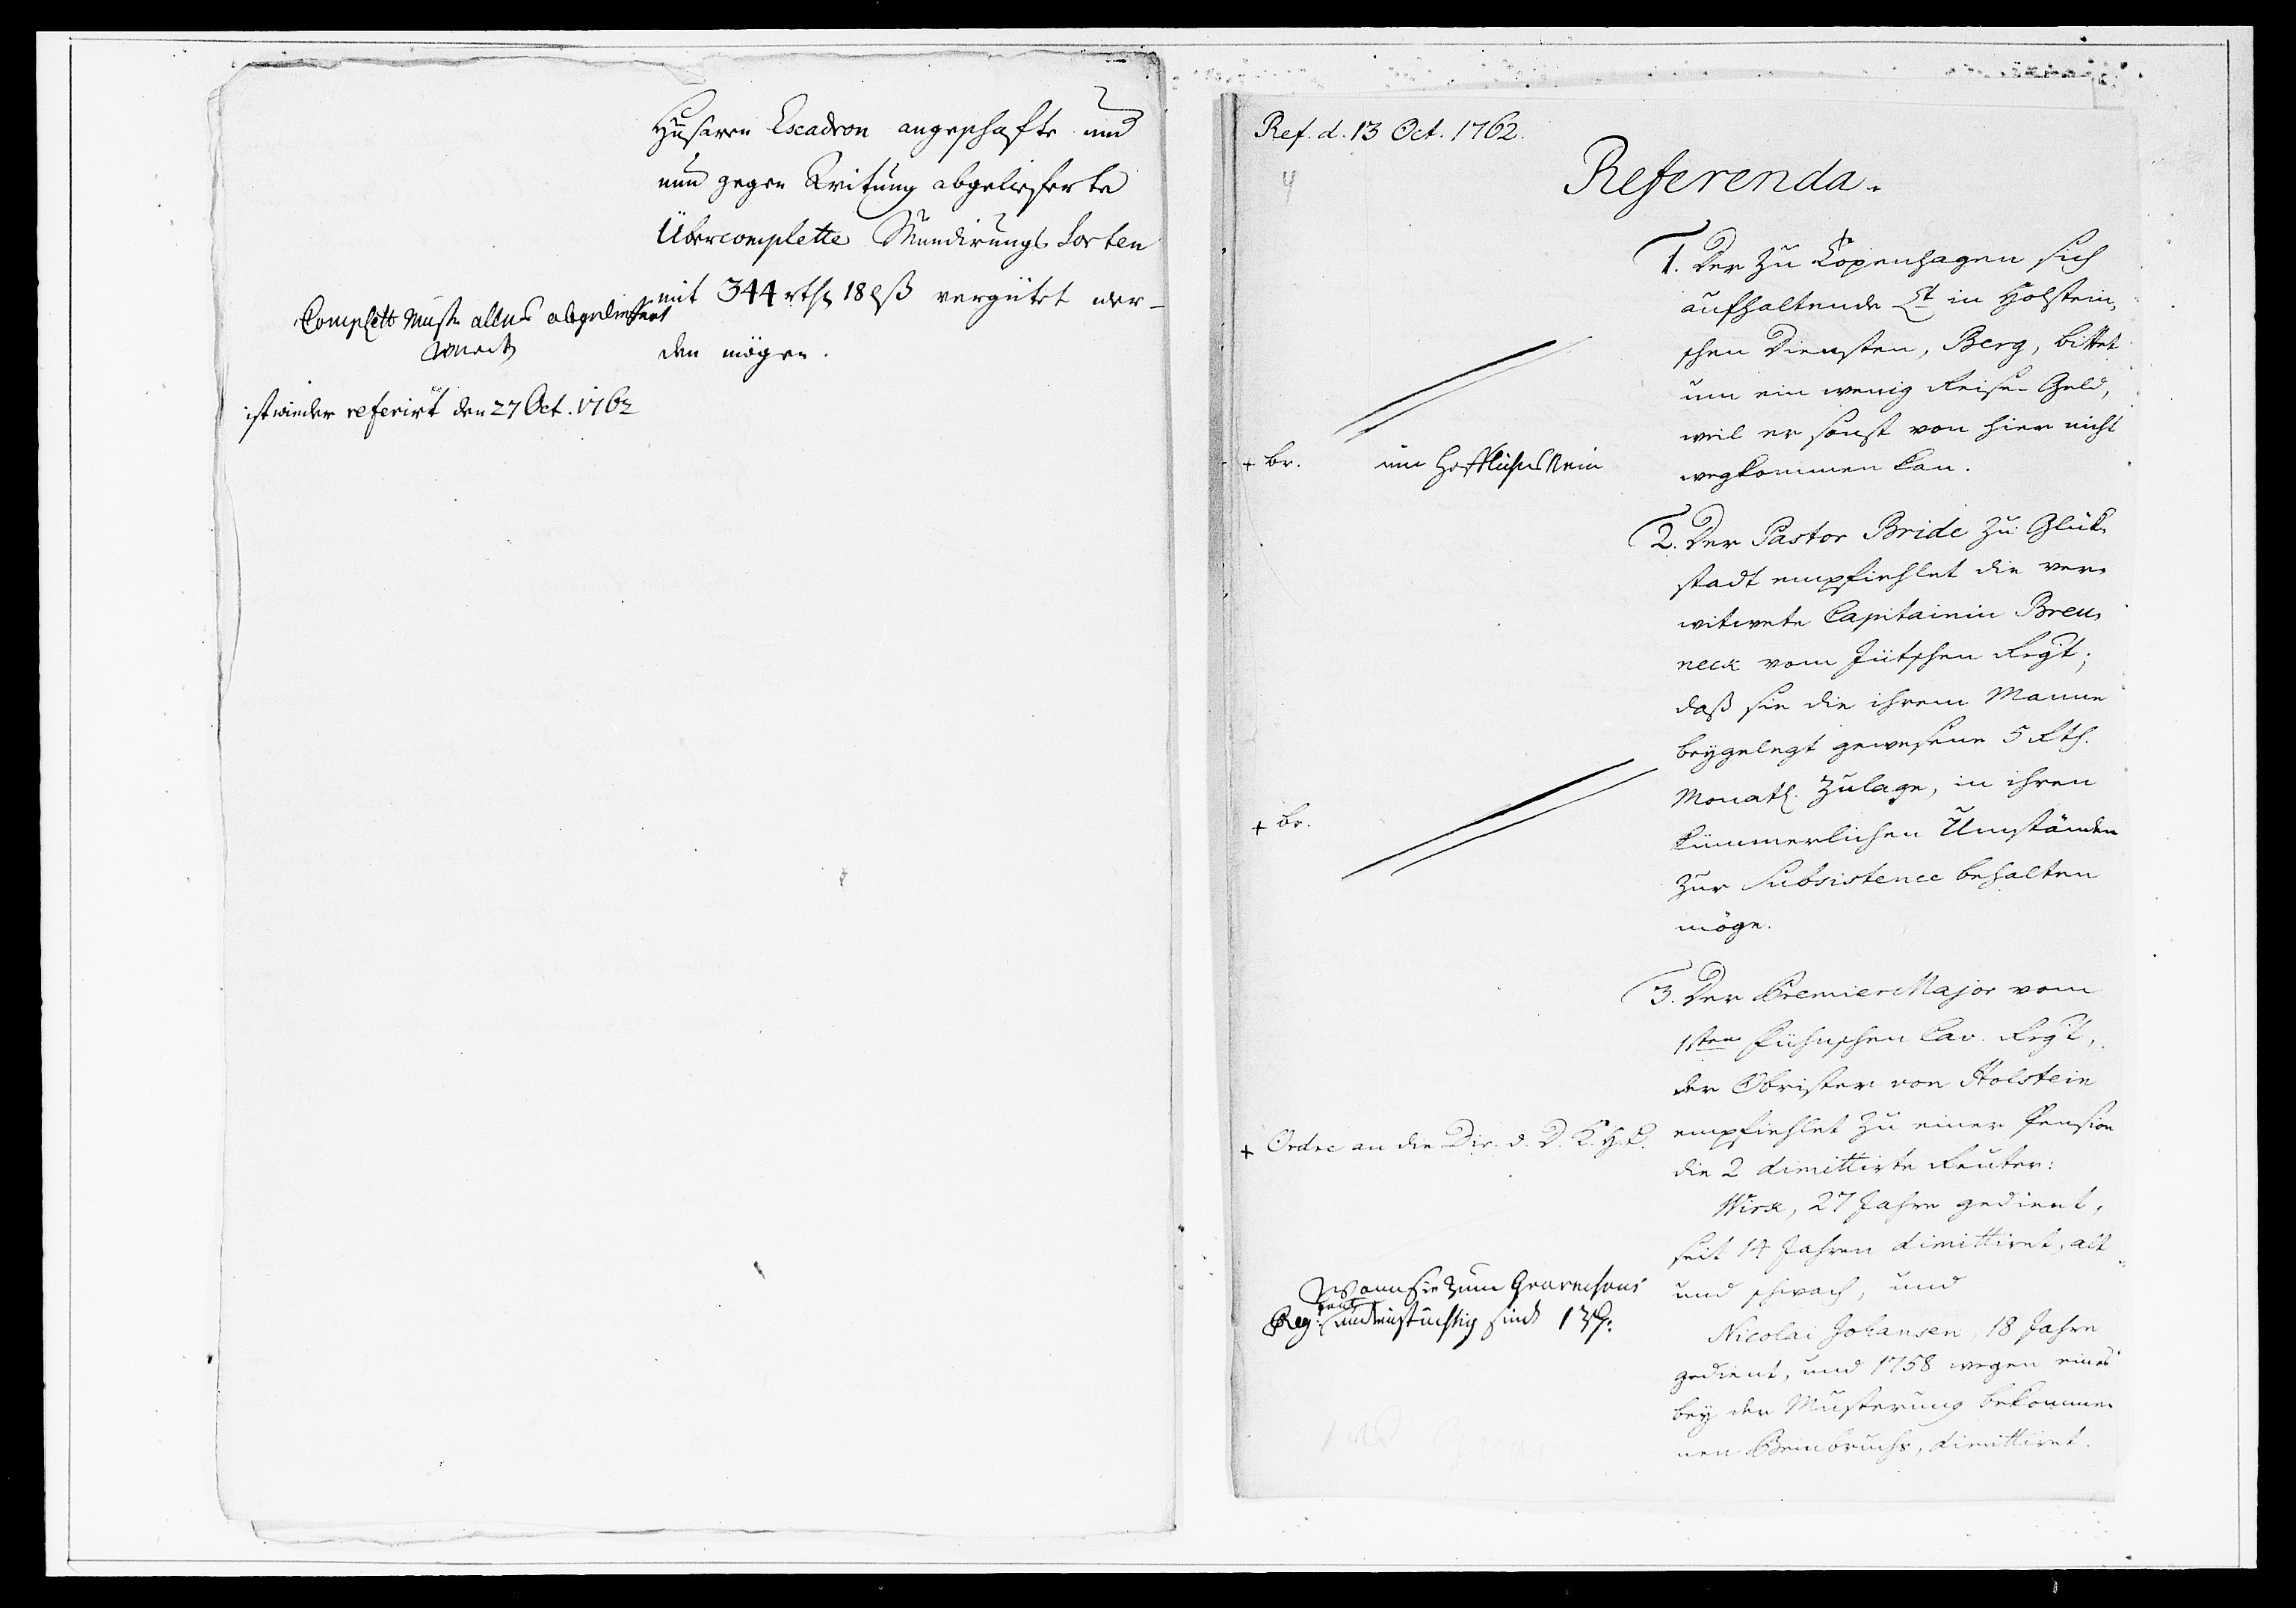 Husaren Escadron angeschafte und
nun gegen Quitung abgelieferte
Übercomplette Mundirungs Sorten
mit 344 rthl 18 lß vergütet wer-
den mögen.
Complett muß alles abgeliefert
werden
ist wieder referirt den 27 Oct. 1762
Ref. d. 13 Oct. 1762.
4
Referenda.
1. Der zu Copenhagen sich
aufhaltende Lt in Holstein-
schen Diensten, Berg, bittet
um ein wenig Reise-Geld,
weil er sonst von hier nicht
wegkommen kan.
+ br.
ein höfliches Nein
2. Der Pastor Bride zu Glük-
stadt empfiehlet die ver-
witwete Capitainin Breu-
neck vom Jütschen Regt;
daß sie die ihrem Manne
beygelegt gewesene 5 Rth.
Monatl. Zulage, in ihren
kümmerlichen Umständen
zur Subsistence behalten
möge.
+ br.
3. Der Premier Major vom
1sten Fühnschen Cav. Regt,
der Obrister von Holstein
empfiehlet zu einer Pension
die 2 dimittirte Reuter:
Wisx, 27 Jahre gedient,
seit 14 Jahren dimittiret, alt
und schwach, und
Nicolai Johansen, 18 Jahre
gedient, und 1758 wegen eines
bey der Musterung bekomme-
nen Beinbruchs, dimittiret.
+ Ordre an die Dir. d. D. K. H. C.
Wann sie zum Guarnisons
Reg: undienstüchtig sind 1